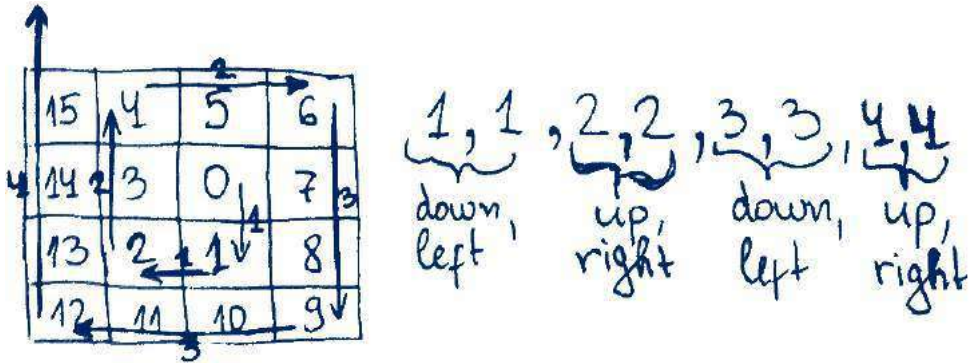 2
15 4 5 6
4 14 2 3 0 7 3
1
13 2 1 1 8
12 11 10 9
3
1, 1, 2, 2, 3, 3, 4, 4
down, left
up, right
down, left
up, right